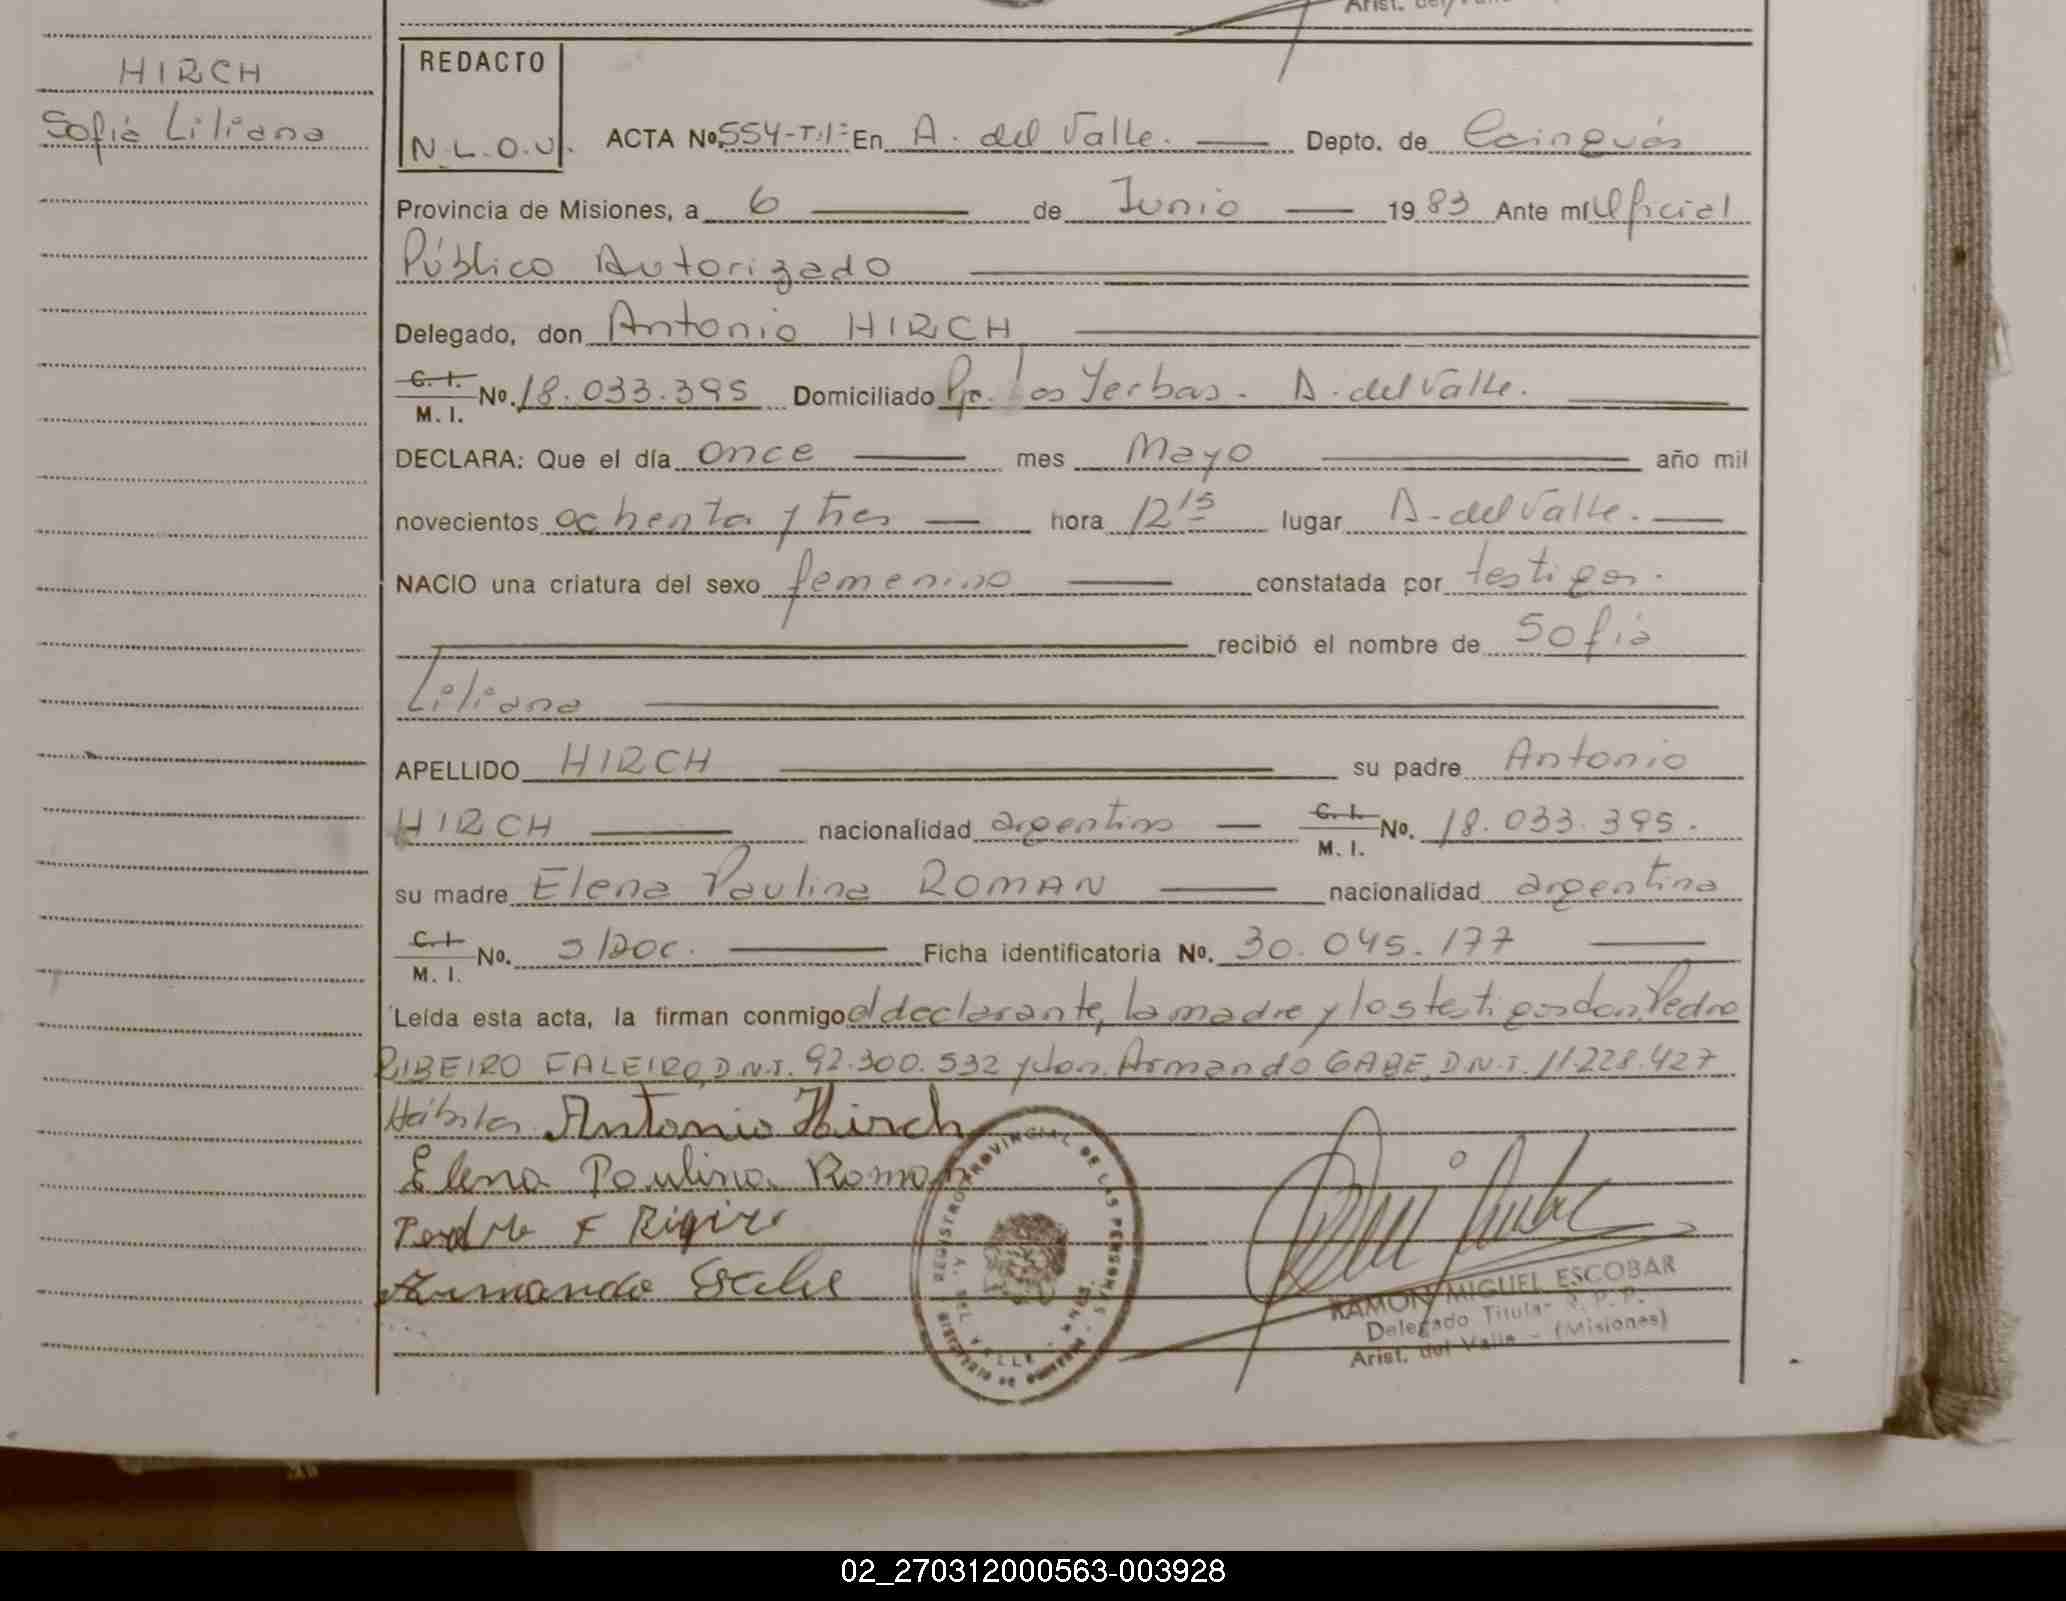 HIRCH
Sofia Liliana
REDACTO
N.L.O.V.
ACTA No. 554-T:1º En A. del Valle. Depto. de Cainguás
Provincia de Misiones, a 6 de Junio 1983 Ante mí Oficial
Público Autorizado
Delegado, don Antonio HIRCH
C. I. M. I. No. 18.033.395 Domiciliado Pje. Los Yerbas - A. del Valle.
DECLARA: Que el día once mes Mayo año mil
novecientos ochenta y tres hora 12 15 lugar A. del Valle.
NACIO una criatura del sexo femenino constatada por testigos.
recibió el nombre de Sofia
Liliana
APELLIDO HIRCH su padre Antonio
HIRCH nacionalidad argentino C. I. M. I. No. 18.033.395.
su madre Elena Paulina ROMAN nacionalidad argentina
C. I. M. I. No. S/Doc. Ficha identificatoria No. 30.045.177
Leída esta acta, la firman conmigo el declarante, la madre y los testigos don Pedro
RIBEIRO FALEIRO, D.N.I. 92.300.532 y don Armando GABE, D.N.I. 11.228.427
Hábiles Antonio Hirch
Elena Paulina Roman
Armando
REGISTRO PROVINCIAL DE LAS PERSONAS
A. DEL VALLE
RAMON MIGUEL ESCOBAR
Delegado Titular R. P. P.
Arist. del Valle - (Misiones)
02_270312000563-003928